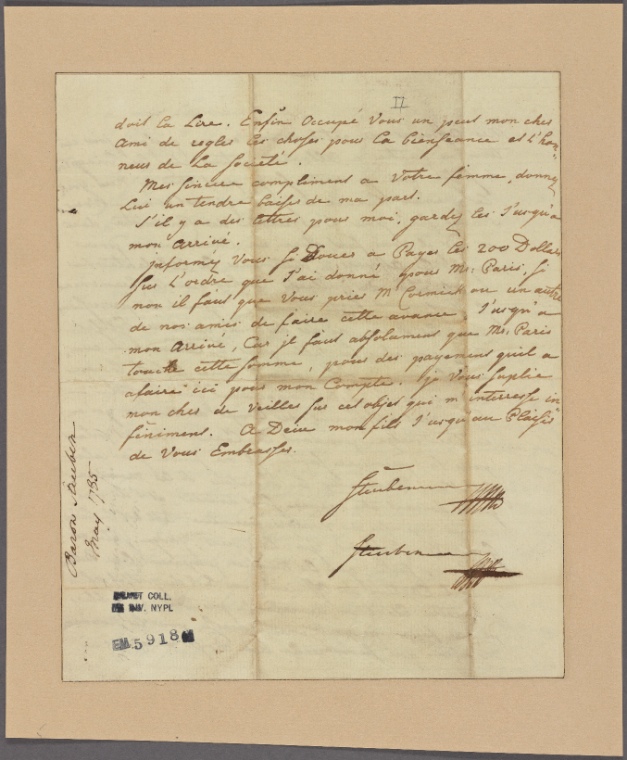 II
doit la Lire. Enfin occupé vous un peut mon cher
Ami de regler les choses pour la bienseance et l'hon
neur de La Societé.
Mes sincere compliment a Votre femme, donnez
Lui un tendre baiser de ma part.
S'il y a des lettres pour moi, gardez les J'usqu'a
mon arrivé.
informez Vous si Doüer a Payer les 200 Dollar
sur L'ordre que J'ai donné pour Mr. Paris, Si
non il faut que Vous priez Mr Cormick ou un autre
de nos amis de faire cette avance, J'usqu'a
mon Arrivé, Car il faut absolument que Mr. Paris
touche cette somme, pour des payement quil a
afaire ici pour mon Compte. Je Vous suplie
mon cher de Veiller sur cet objet qui m'interresse in
finiment. A Deiu mon fils J'usqu'au Plaisir
de Vous Embrasser.
Steuben
Steuben
Baron Steuben
May 1785
COLL.
NYPL
EM 5918